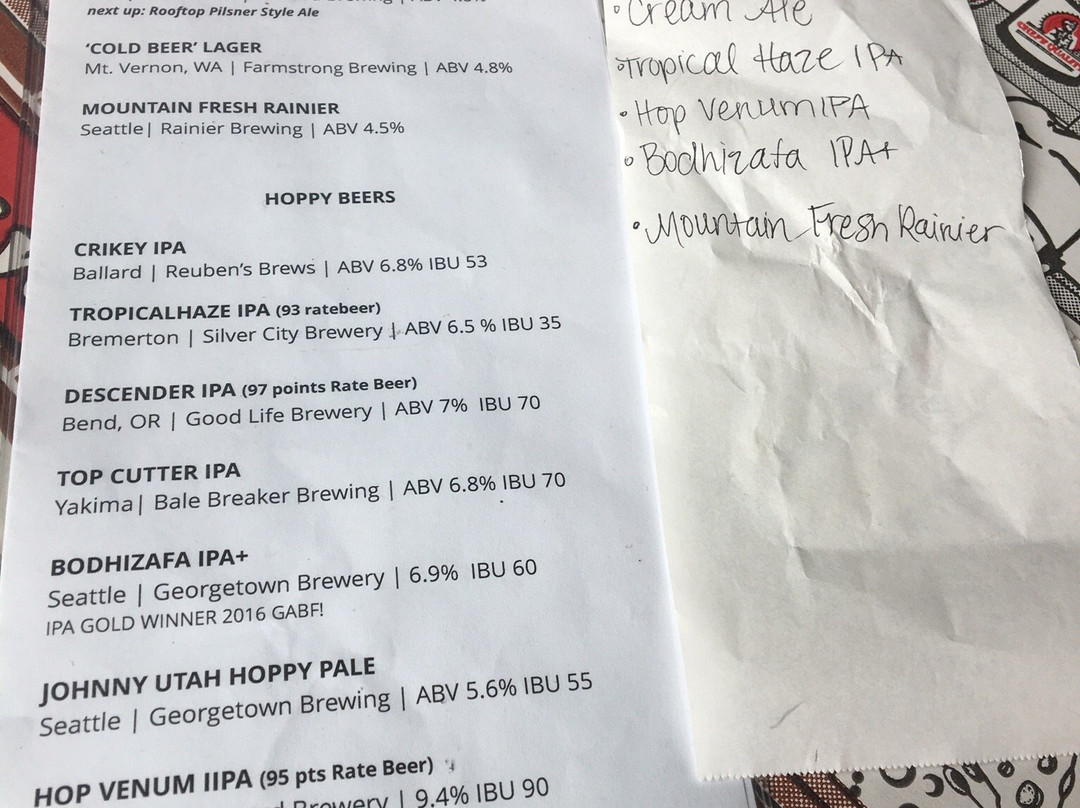 next up: Rooftop Pilsner Style Ale
'COLD BEER' LAGER
Mt. Vernon, WA | Farmstrong Brewing | ABV 4.8%
MOUNTAIN FRESH RAINIER
Seattle| Rainier Brewing | ABV 4.5%
HOPPY BEERS
CRIKEY IPA
Ballard | Reuben's Brews | ABV 6.8% IBU 53
TROPICALHAZE IPA (93 ratebeer)
Bremerton | Silver City Brewery | ABV 6.5 % IBU 35
DESCENDER IPA (97 points Rate Beer)
Bend, OR | Good Life Brewery | ABV 7% IBU 70
TOP CUTTER IPA
Yakima| Bale Breaker Brewing | ABV 6.8% IBU 70
BODHIZAFA IPA+
Seattle | Georgetown Brewery | 6.9% IBU 60
IPA GOLD WINNER 2016 GABF!
JOHNNY UTAH HOPPY PALE
Seattle | Georgetown Brewing | ABV 5.6% IBU 55
HOP VENUM IIPA (95 pts Rate Beer)
Brewery | 9.4% IBU 90
•Cream Ale
•Tropical Haze IPA
•Hop Venum IPA
•Bodhizafa IPA+
•Mountain Fresh Rainier